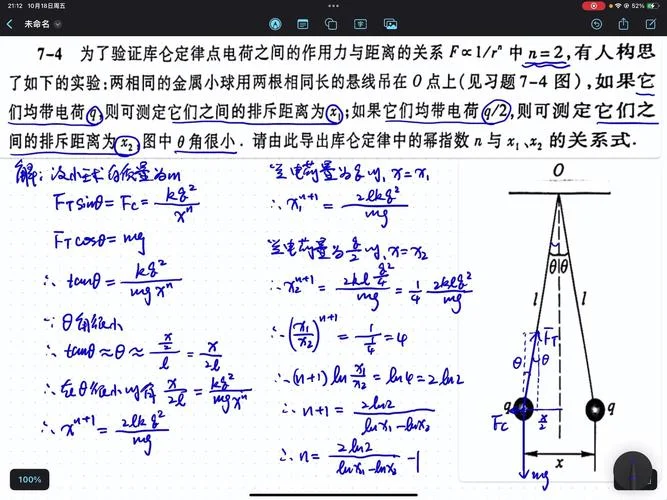 21:12 10月18日周五
52%
未命名
7-4 为了验证库仑定律点电荷之间的作用力与距离的关系 F∝1/rⁿ 中 n=2,有人构思
了如下的实验:两相同的金属小球用两根相同长的悬线吊在 O 点上(见习题7-4 图),如果它
们均带电荷 q,则可测定它们之间的排斥距离为 x₁;如果它们均带电荷 q/2,则可测定它们之
间的排斥距离为 x₂,图中 θ 角很小.请由此导出库仑定律中的幂指数 n 与 x₁、x₂ 的关系式.
解:设小球的质量为m
F_T sinθ = F_C = kq²/xⁿ
F_T cosθ = mg
∴ tanθ = kq²/(mgxⁿ)
∵ θ角很小
∴ tanθ ≈ θ ≈ (x/2)/l = x/2l
∴ 在θ很小时有 x/2l = kq²/(mgxⁿ)
∴ xⁿ⁺¹ = 2lkq²/mg
当电荷量为q时, x = x₁
∴ x₁ⁿ⁺¹ = 2lkq²/mg
当电荷量为q/2时, x = x₂
∴ x₂ⁿ⁺¹ = (2kl q²/4)/mg = 1/4 2klq²/mg
∴ (x₁/x₂)ⁿ⁺¹ = 1/(1/4) = 4
∴ (n+1) ln x₁/x₂ = ln4 = 2ln2
∴ n+1 = 2ln2/(lnx₁-lnx₂)
∴ n = 2ln2/(lnx₁-lnx₂) - 1
O
θ θ
l l
F_T
θ θ
q q
F_C x/2
x
mg
100%